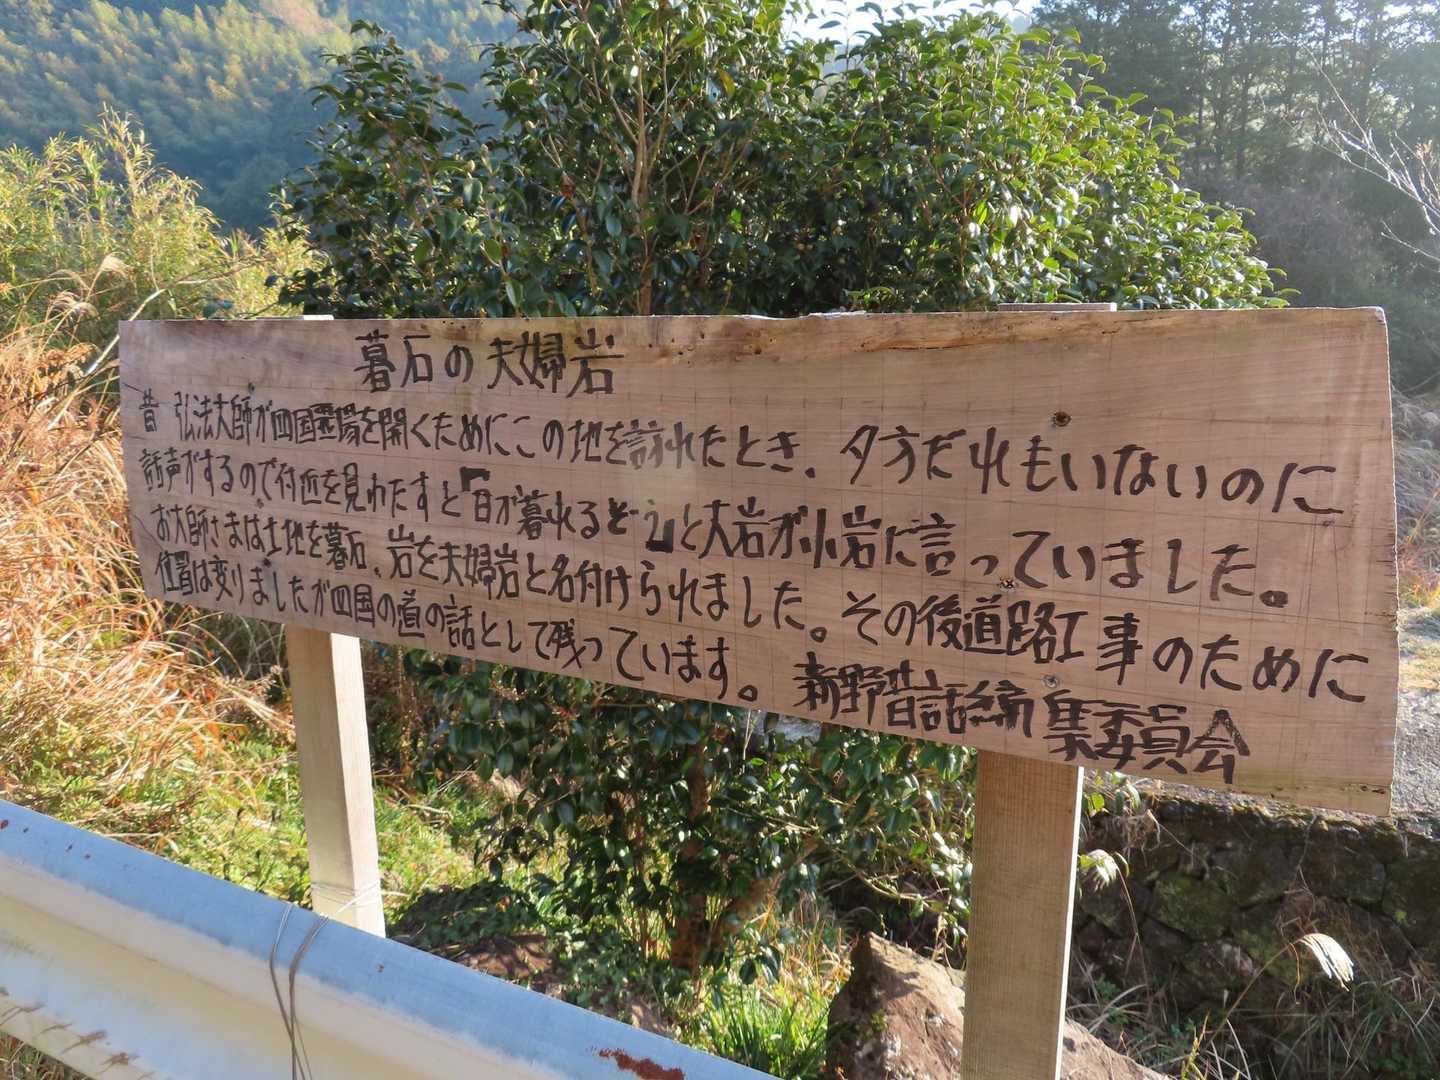 暮石の夫婦岩
昔 弘法大師が四国霊場を開くためにこの地を訪れたとき、夕方だれもいないのに
話声がするので付近を見わたすと「日が暮れるぞう」と大岩が小岩に言っていました。
お大師さまは土地を暮石、岩を夫婦岩と名付けられました。その後道路工事のために
位置は変りましたが四国の道の話として残っています。 新野昔話編集委員会